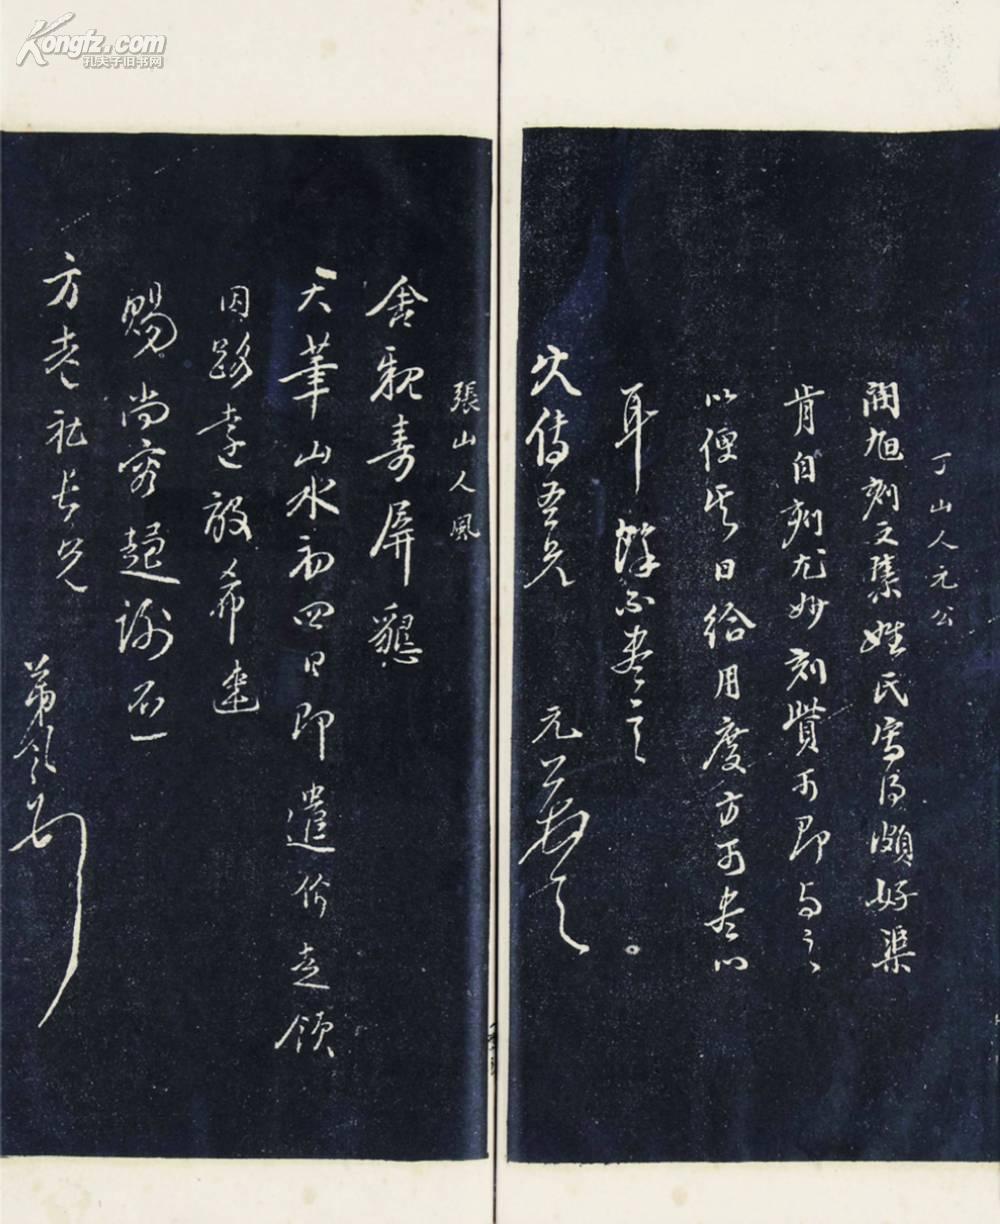 Kongfz.com
孔夫子旧书网
丁山人元公
閔旭刻文集姓氏寫得頗好渠
肯自刻尤妙刻貲可即与之
以便其日給用度方可盡心
耳餘不盡言
火傳吾兄 元公
張山人風
舍親壽屏懇
天筆山水初四日即遣价走領
因路遠故希速
賜尚容趨謝不一
方老社長兄
弟風